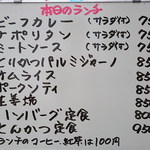 本日のランチ
ビーフカレー (サラダ付)
ナポリタン (サラダ付) 75
ミートソース (サラダ付) 75
とりかつパルミジャーノ 85
オムライス 85
ポークソティ 85
生姜焼 85
ハンバーグ定食 8
とんかつ定食 95
ランチのコーヒー、紅茶は100円